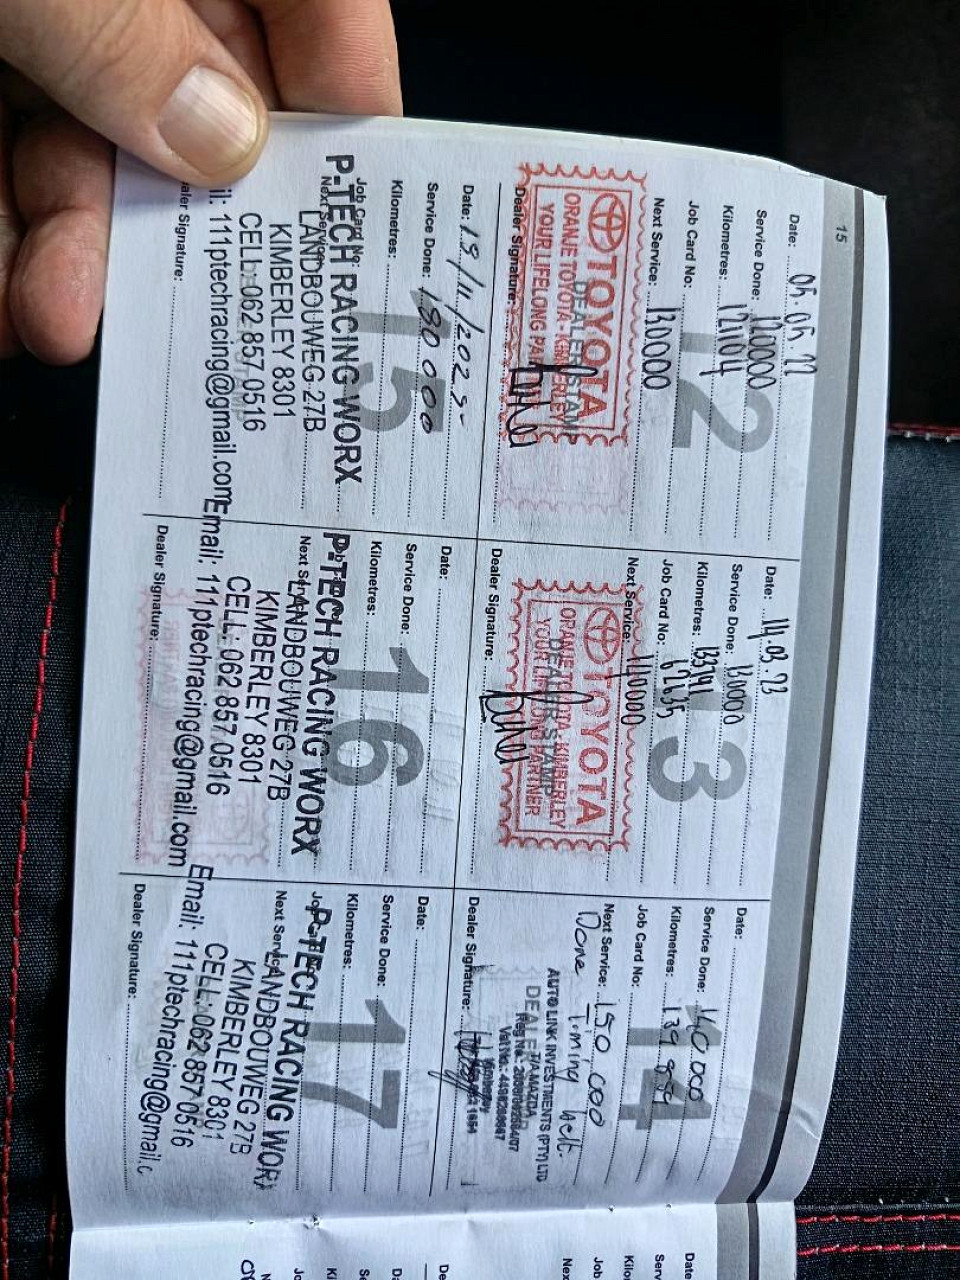 15
Date: 05.05.22
Service Done: 120000
Kilometres: 121104
Job Card No:
Next Service: 130000
12
TOYOTA
ORANJE TOYOTA - KIMBERLEY
YOUR LIFELONG PARTNER
DEALER STAMP
Dealer Signature:
Date: 14.03.23
Service Done: 130000
Kilometres: 133941
Job Card No: 62635
Next Service: 140000
13
TOYOTA
ORANJE TOYOTA - KIMBERLEY
YOUR LIFELONG PARTNER
DEALER STAMP
Dealer Signature:
Date:
Service Done: 140 000
Kilometres: 139 999
Job Card No:
Next Service: 150 000
14
Done Timing belt.
AUTO LINK INVESTMENTS (PTY) LTD
DEALER
Dealer Signature:
Date: 19/11/2025
Service Done: 180 000
Kilometres:
Job Card No:
Next Service:
15
P-TECH RACING WORX
LANDBOUWEG 27B
KIMBERLEY 8301
CELL: 062 857 0516
il: 111ptechracing@gmail.com
aler Signature:
Date:
Service Done:
Kilometres:
Next Service:
16
P-TECH RACING WORX
LANDBOUWEG 27B
KIMBERLEY 8301
CELL: 062 857 0516
Email: 111ptechracing@gmail.com
Dealer Signature:
Date:
Service Done:
Kilometres:
Job Card No:
Next Service:
17
P-TECH RACING WORX
LANDBOUWEG 27B
KIMBERLEY 8301
CELL: 062 857 0516
Email: 111ptechracing@gmail.c
Dealer Signature:
Date
Serv
Kilo
Job
Nex
De
Da
Se
Ki
Jo
N